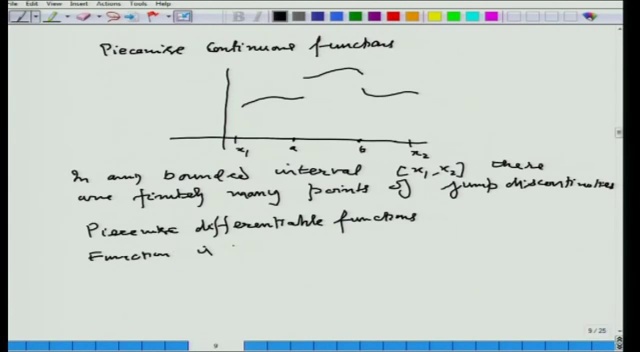 View Insert Actions Tools Help
Piecewise Continuous functions
x1 a b x2
In any bounded interval [x1, x2] there
are finitely many points of jump discontinuities
Piecewise differentiable functions
Function is
9/25
9